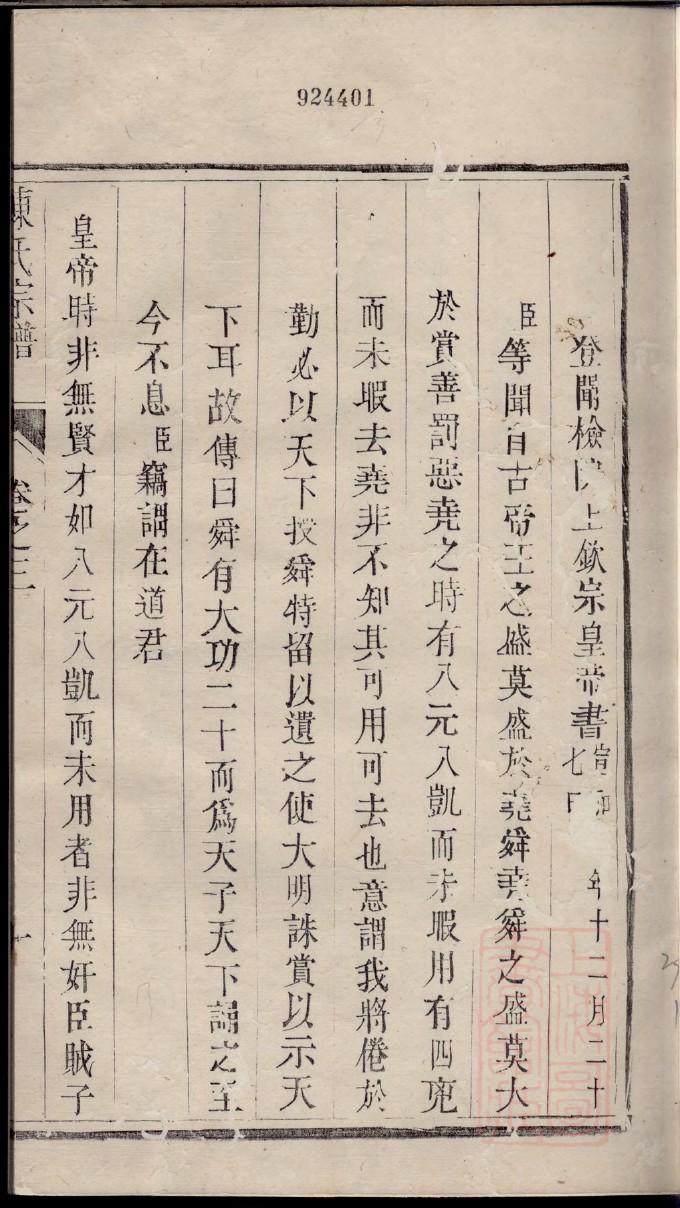 924401
登聞檢院上欽宗皇帝書宣和 年十二月二十七日
臣等聞自古帝王之盛莫盛於堯舜堯舜之盛莫大
於賞善罰惡堯之時有八元八凱而未暇用有四兇
而未暇去堯非不知其可用可去也意謂我將倦於
勤必以天下授舜特留以遺之使大明誅賞以示天
下耳故傳曰舜有大功二十而爲天子天下誦之至
今不息臣竊謂在道君
皇帝時非無賢才如八元八凱而未用者非無奸臣賊子
陳氏宗譜 卷之三 一